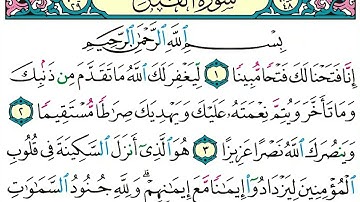 سورة الفتح
بِسْمِ ٱللَّهِ ٱلرَّحْمَٰنِ ٱلرَّحِيمِ
إِنَّا فَتَحْنَا لَكَ فَتْحًا مُّبِينًا ١ لِّيَغْفِرَ لَكَ ٱللَّهُ مَا تَقَدَّمَ مِن ذَنۢبِكَ
وَمَا تَأَخَّرَ وَيُتِمَّ نِعْمَتَهُۥ عَلَيْكَ وَيَهْدِيَكَ صِرَٰطًا مُّسْتَقِيمًا ٢
وَيَنصُرَكَ ٱللَّهُ نَصْرًا عَزِيزًا ٣ هُوَ ٱلَّذِىٓ أَنزَلَ ٱلسَّكِينَةَ فِى قُلُوبِ
ٱلْمُؤْمِنِينَ لِيَزْدَادُوٓا۟ إِيمَٰنًا مَّعَ إِيمَٰنِهِمْ ۗ وَلِلَّهِ جُنُودُ ٱلسَّمَٰوَٰتِ